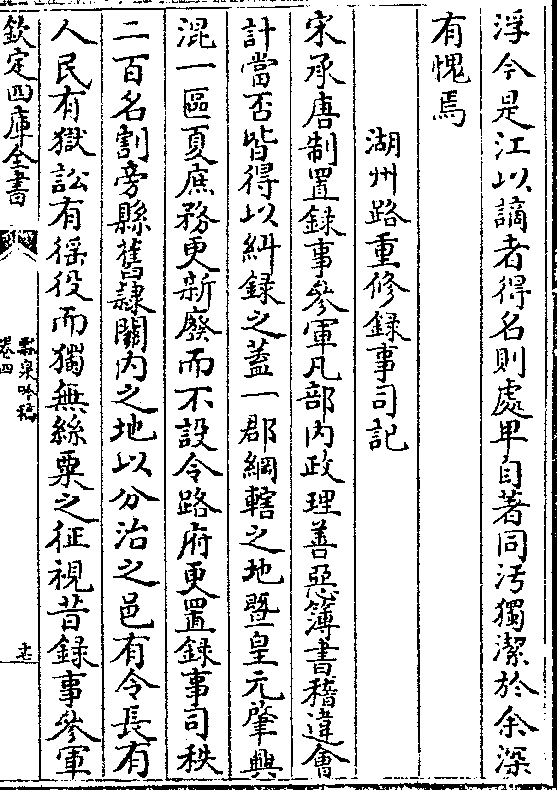 浮今是江以謫者得名則處卑自著同汚獨潔於余深
有愧焉
湖州路重修録事司記
宋承唐制置録事參軍凡部内政理善惡簿書稽違會
計當否皆得以糾録之蓋一郡綱轄之地暨皇元肇興
混一區夏庶務更新廢而不設令路府更置録事司秩
二百名割旁縣舊隷關内之地以分治之邑有令長有
人民有獄訟有徭役而獨無絲粟之征視昔録事參軍
欽定四庫全書
瓢泉吟稿
卷四